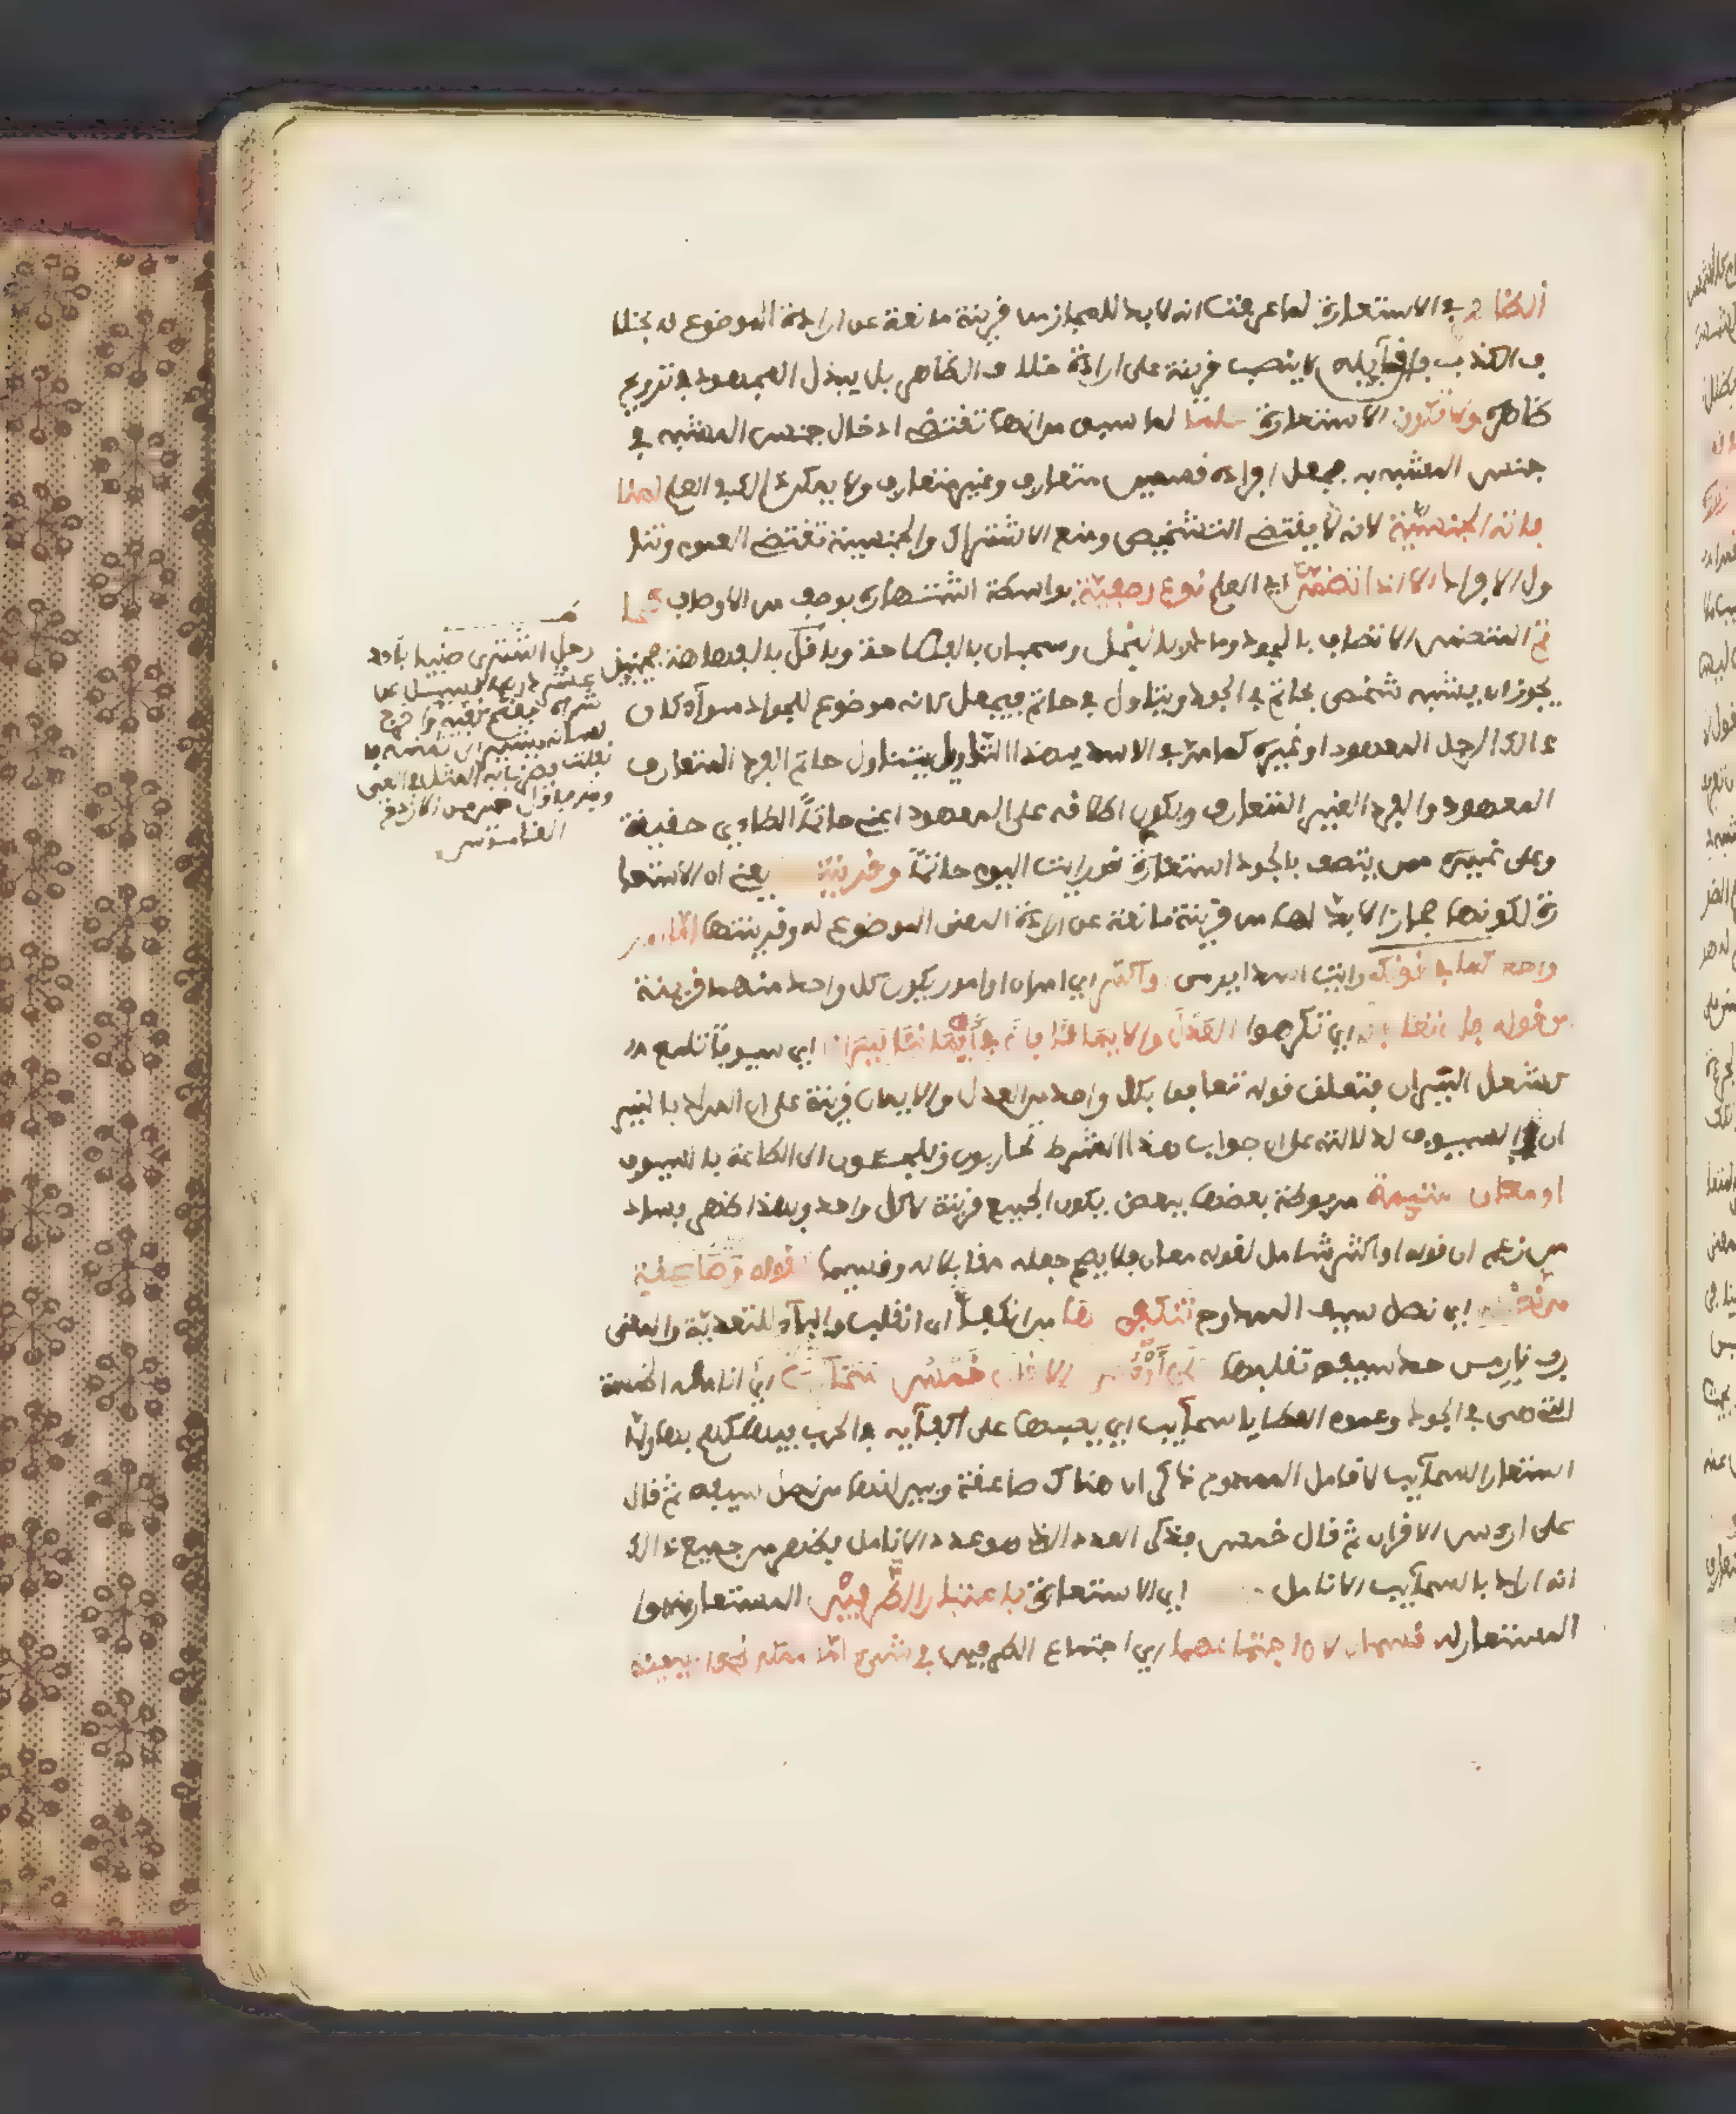 الظاهر في الاستعارة لما عرفت انه لا بد للمجاز من قرينة مانعة عن ارادة الموضوع له بخلا
ف الكذب فان قايله لا ينصب قرينة على ارادة خلاف الظاهر بل يبذل المجهود في ترويج
ظاهره ولا تكون الاستعارة علما لما سبق من انها تقتضي ادخال جنس المشبه في
جنس المشبه به بجعل افراده قسمين متعارف وغير متعارف ولا يمكن ذلك في العلم لمنا
فاته الجنسية لانه يقتضي التشخيص ومنع الاشتراك والجنسية تقتضي العموم وتنا
ول الافراد الا اذا تضمن اي العلم نوع وصفية بواسطة اشتهاره بوصف من الاوصاف كحا
تم المتضمن الاتصاف بالجود ومادر بالبخل وسحبان بالفصاحة وباقل بالفهاهة فحينئذ
يجوز ان يشبه شخص بحاتم في الجود ويتاول في حاتم فيجعل كانه موضوع للجواد سوآء كان
ذالك الرجل المعهود او غيره كما مر في الاسد بهذا التاويل يتناول حاتم الفرد المتعارف
المعهود والفرد الغير المتعارف ويكون اطلاقه على المعهود اعني حاتما الطاءي حقيقة
وعلى غيره ممن يتصف بالجود استعارة نحو رايت اليوم حاتما وقرينتها يعني ان الاستعا
رة لكونها مجازا لا بد لها من قرينة مانعة عن ارادة المعنى الموضوع له وقرينتها اما امر
واحد كما في قولك رايت اسدا يرمى واكثر اي امران او امور يكون كل واحد منها قرينة
اي تكرهوا العدل والايمانا فان في أيماننا نيرانا اي سيوفا تلمع
كشعل النيران فتعلق قوله تعافوا بكل واحد من العدل والايمان قرينة على ان المراد بالنير
ان السيوف لدلالته على ان جواب هذا الشرط تحاربون وتلجئون الى الطاعة بالسيوف
او معان ملتئمة مربوطة بعضها ببعض يكون الجميع قرينة لا كل واحد وبهذا ظهر فساد
من زعم ان قوله او اكثر شامل لقوله معان فلا يصح جعله مقابلا له وقسيما قوله وصاعقة
من نصله اي نصل سيف الممدوح تنكفي بها من انكفأ اي انقلب والباء للتعدية والمعنى
رب نار من حد سيفه تقلبها على أرؤس الاقران خمس سحائب اي انامله الخمسة
التي هي في الجود وعموم العطايا سحآيب اي يصبها على اكفآيه في الحرب فيهلكهم بها ولما
استعار السحآيب لانامل الممدوح ذكر ان هناك صاعقة وبين انها من نصل سيفه ثم قال
على ارؤس الاقران ثم قال خمس فذكر العدد الذي هو عدد الانامل فظهر من جميع ذالك
انه اراد بالسحآيب الانامل اي الاستعارة باعتبار الطرفين المستعار منه وا
المستعار له قسمان لان اجتماعهما اي اجتماع الطرفين في شيء اما ممكن نحو
رجل اشترى ظبيا باحد
عشر درهما فسئل عن
شراه ففتح كفيه واخرج
لسانه يشير الى ثمنه فا
نفلت فضرب به المثل في العي
القاموس